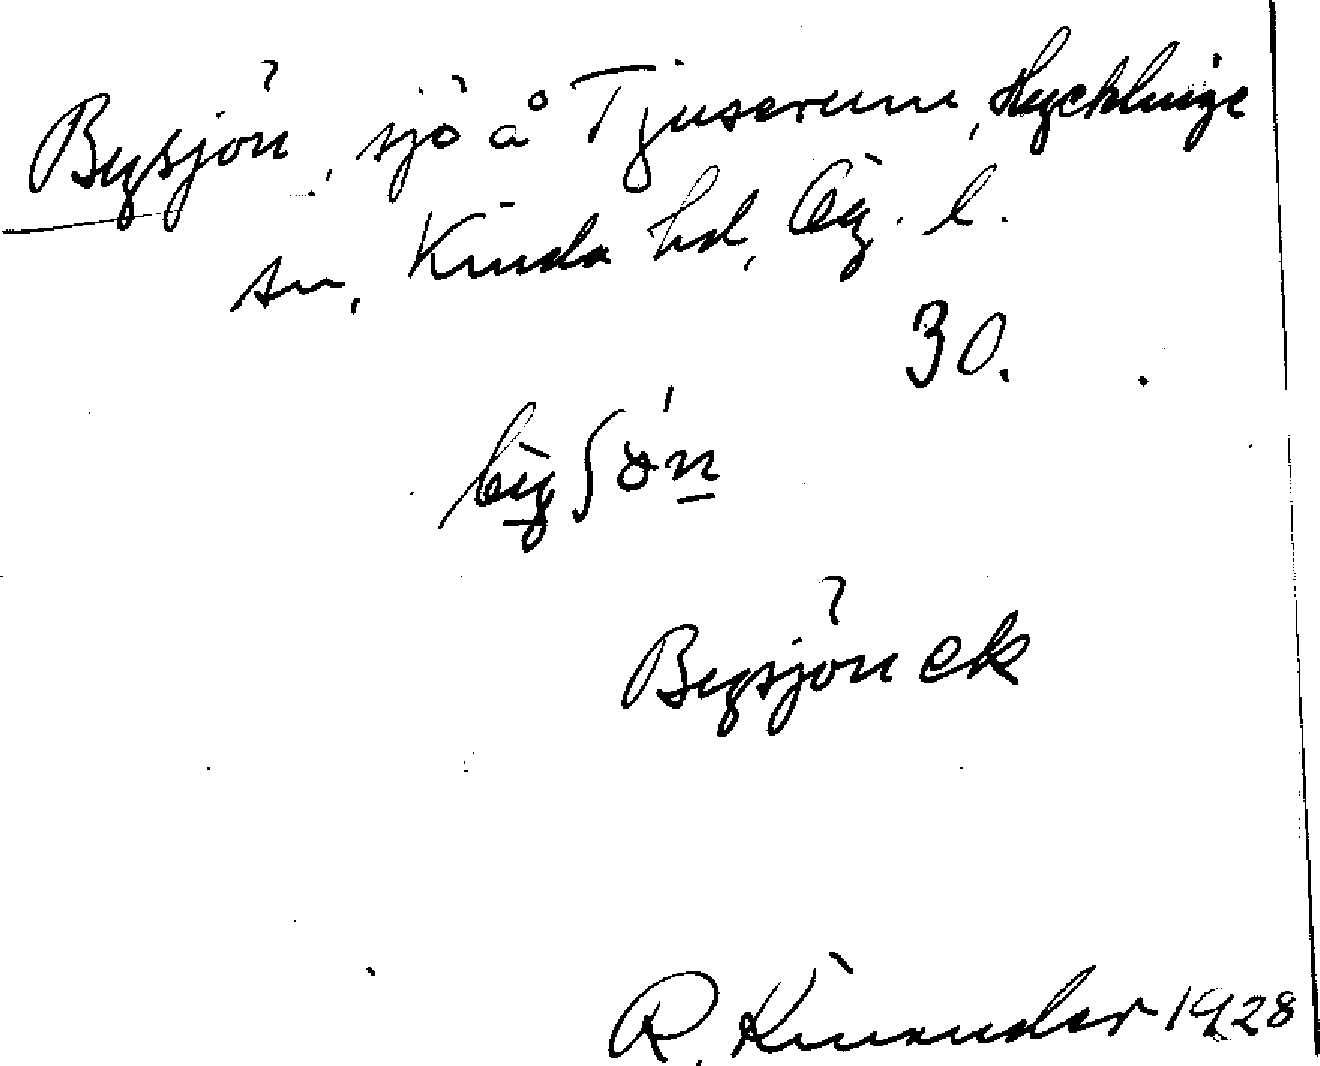 Bysjön, sjö å Tjuserum, Hycklinge
sn, Kinda hd, Ög. l.
30.
Bysjön ek
R. Kinander 1928